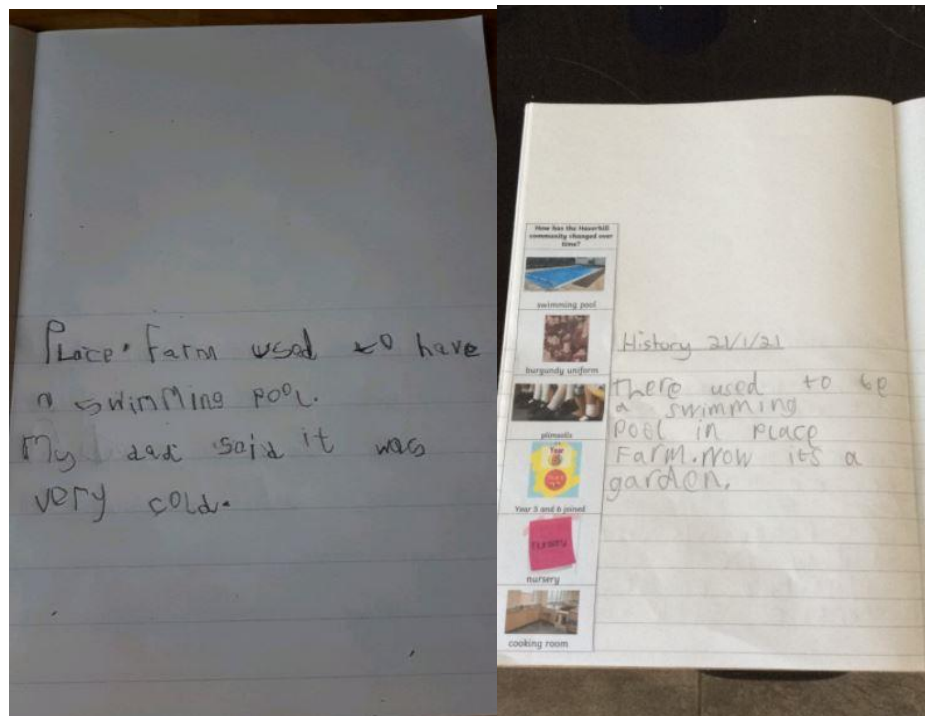 Place Farm used to have
a swimming pool.
My dad said it was
very cold.
How has the Haverhill
community changed over
time?
swimming pool
burgundy uniform
plimsolls
Year
Year 5 and 6 joined
nursery
cooking room
History 21/1/21
there used to be
a swimming
Pool in Place
Farm. Now it's a
garden.